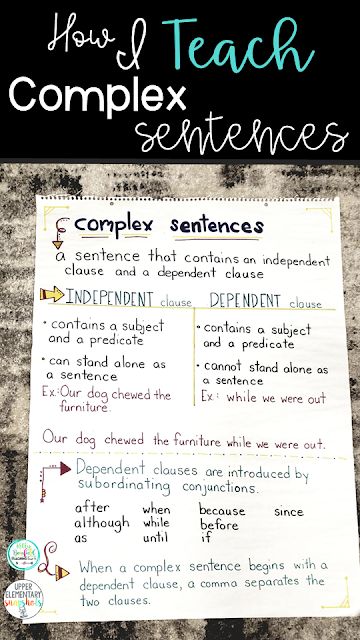 How I Teach
Complex
sentences
complex sentences
a sentence that contains an independent
clause and a dependent clause
INDEPENDENT clause DEPENDENT clause
• contains a subject
and a predicate
• can stand alone as
a sentence
Ex.: Our dog chewed the
furniture.
• contains a subject
and a predicate
• cannot stand alone as
a sentence
Ex.: while we were out
Our dog chewed the furniture while we were out.
Dependent clauses are introduced by
subordinating conjunctions.
after when because since
although while before
as until if
When a complex sentence begins with a
dependent clause, a comma separates the
two clauses.
UPPER
ELEMENTARY
snapshots